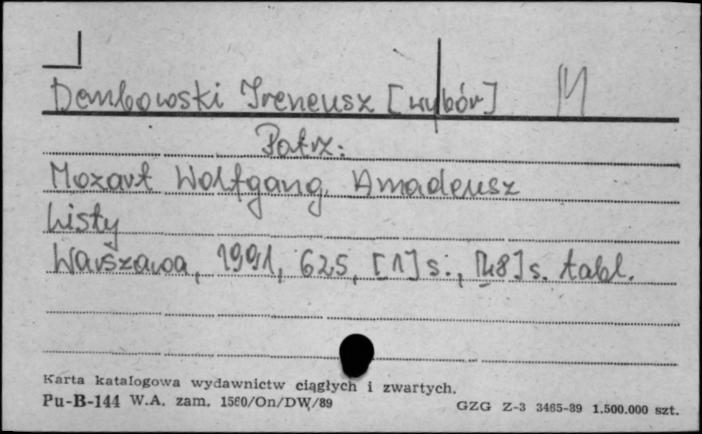 Dembowski Ireneusz [wybór] M
Patrz:
Mozart Wolfgang Amadeusz
Listy
Warszawa, 1991, 625, [1] s., [48] s. tabl.
Karta katalogowa wydawnictw ciągłych i zwartych.
Pu-B-144 W.A. zam. 1560/On/DW/89
GZG Z-3 3465-89 1.500.000 szt.